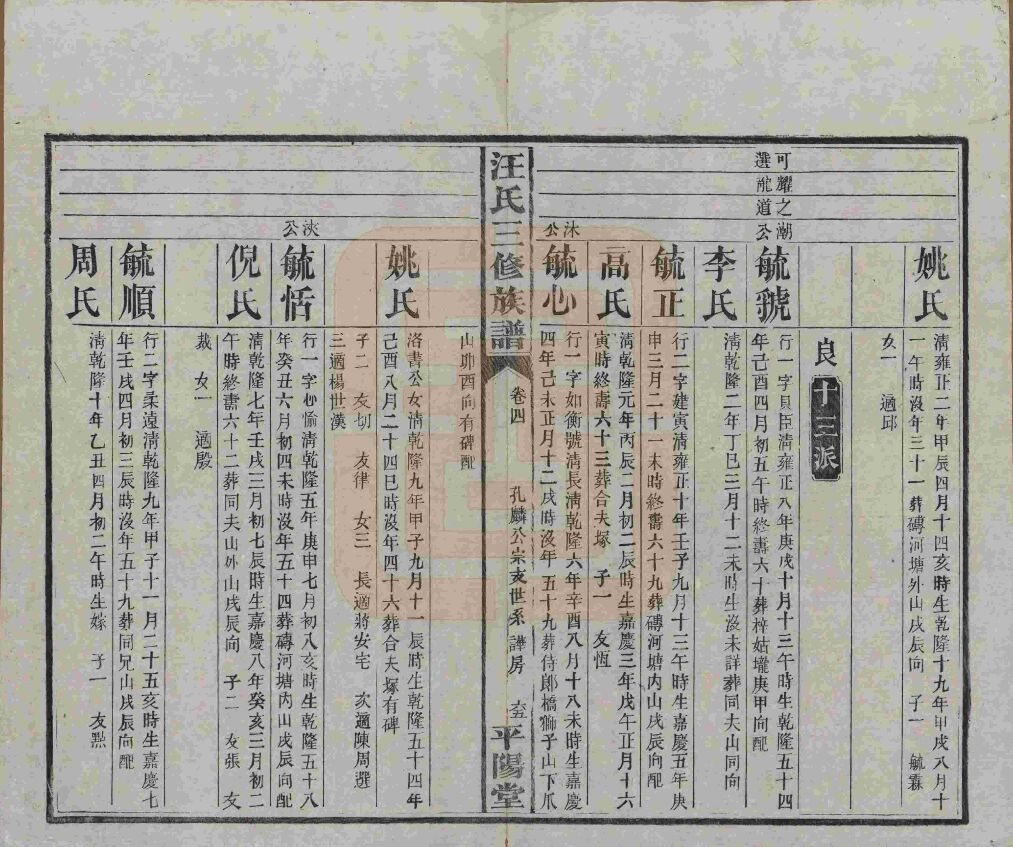 姚氏
清雍正二年甲辰四月十四亥時生乾隆十九年甲戌八月十
一午時沒年三十一葬磚河塘外山戌辰向 子一 毓霖
女一 適邱
良十三派
可耀之潮
選龍道公
毓號
行一字貝臣清雍正八年庚戌十月十三午時生乾隆五十四
年己酉四月初五午時終壽六十葬梓姑壠庚甲向配
李氏
清乾隆二年丁巳三月十二未時生沒未詳葬同夫山同向
毓正
行二字建寅清雍正十年壬子九月十三午時生嘉慶五年庚
申三月二十一未時終壽六十九葬磚河塘內山戌辰向配
高氏
清乾隆元年丙辰二月初二辰時生嘉慶三年戊午正月十六
寅時終壽六十三葬合夫塚 子一 友恆
沐公
毓心
行一字如衡號清長清乾隆六年辛酉八月十八未時生嘉慶
四年己未正月十二戌時沒年五十九葬侍郎橋獅子山下爪
汪氏三修族譜
卷四
孔麟公宗支世系 譁房
六五
平陽堂
山卯酉向有碑配
姚氏
洛書公女清乾隆九年甲子九月十一辰時生乾隆五十四年
己酉八月二十四巳時沒年四十六葬合夫塚有碑
子二 友切 友律 女三 長適蔣安宅 次適陳周選
三適楊世漢
浹公
毓恬
行一字心愉清乾隆五年庚申七月初八亥時生乾隆五十八
年癸丑六月初四未時沒年五十四葬磚河塘內山戌辰向配
倪氏
清乾隆七年壬戌三月初七辰時生嘉慶八年癸亥三月初二
午時終壽六十二葬同夫山外山戌辰向 子二 友張 友
裁 女一 適殷
毓順
行二字柔遠清乾隆九年甲子十一月二十五亥時生嘉慶七
年壬戌四月初三辰時沒年五十九葬同兄山戌辰向配
周氏
清乾隆十年乙丑四月初二午時生嫁 子一 友㸃